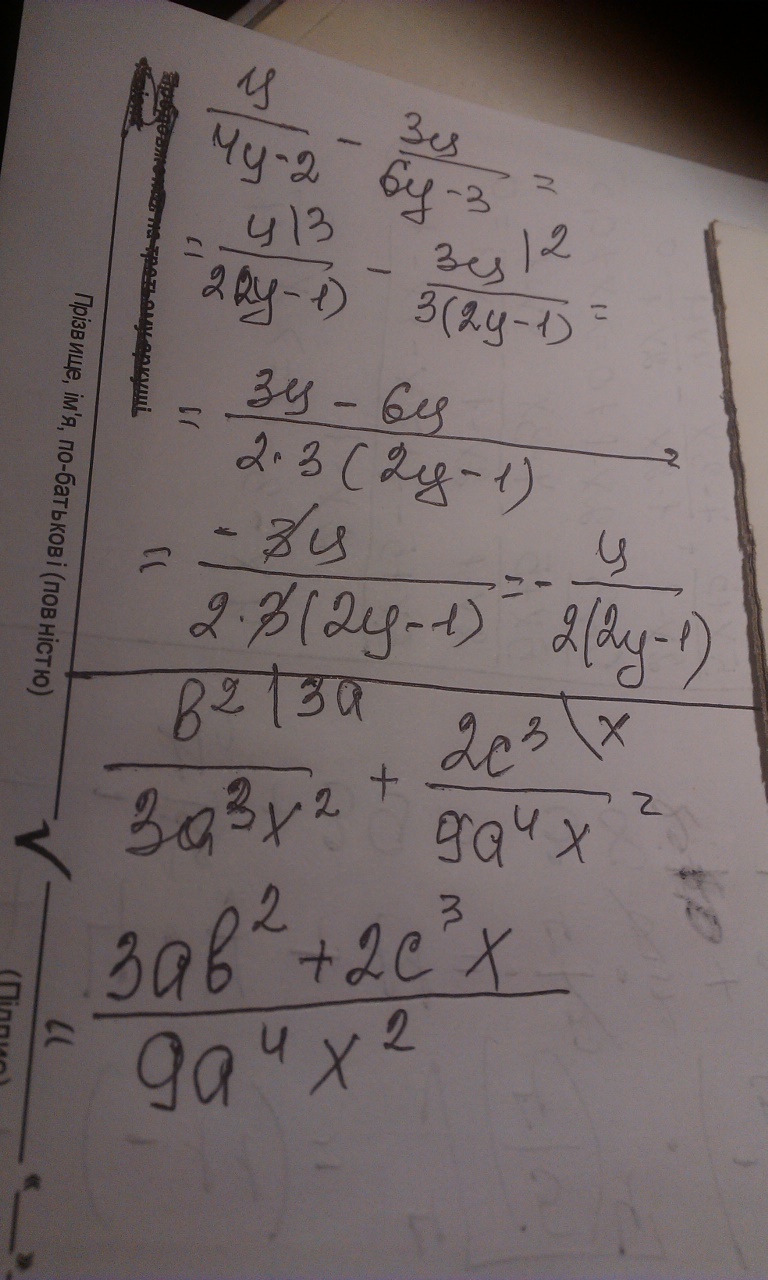 y/(4y-2) - 3y/(6y-3) =
= y\3/(2(2y-1)) - 3y|2/(3(2y-1)) =
= (3y - 6y)/(2·3(2y-1)) =
= -3y/(2·3(2y-1)) = - y/(2(2y-1))
b²|3a/(3a³x²) + 2c³\x/(9a⁴x) =
(3ab² + 2c³x)/(9a⁴x²)
Прізвище, ім'я, по-батькові (повністю)
(Підпис)
"__"